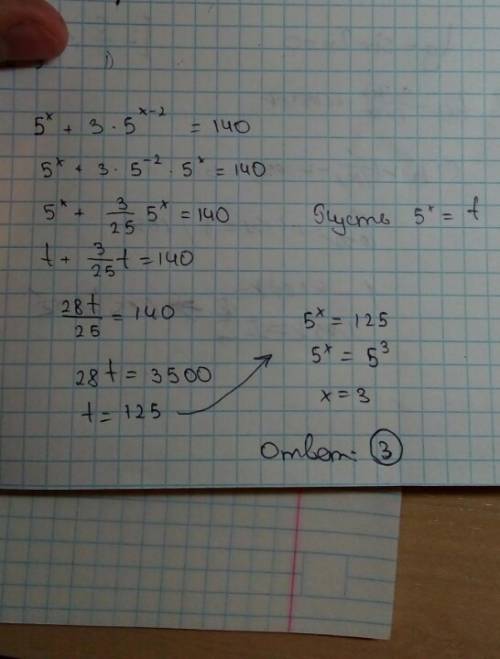 1)
5ˣ + 3 · 5ˣ⁻² = 140
5ˣ + 3 · 5⁻² · 5ˣ = 140
5ˣ + 3/25 5ˣ = 140
Пусть 5ˣ = t
t + 3/25 t = 140
28t/25 = 140
28t = 3500
t = 125
5ˣ = 125
5ˣ = 5³
x = 3
Ответ: 3